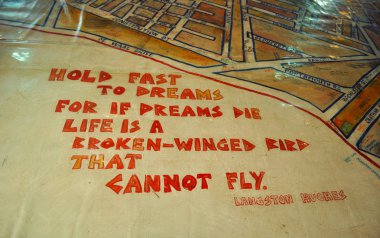 HOLD FAST
TO DREAMS
FOR IF DREAMS DIE
LIFE IS A
BROKEN-WINGED BIRD
THAT
CANNOT FLY.
LANGSTON HUGHES